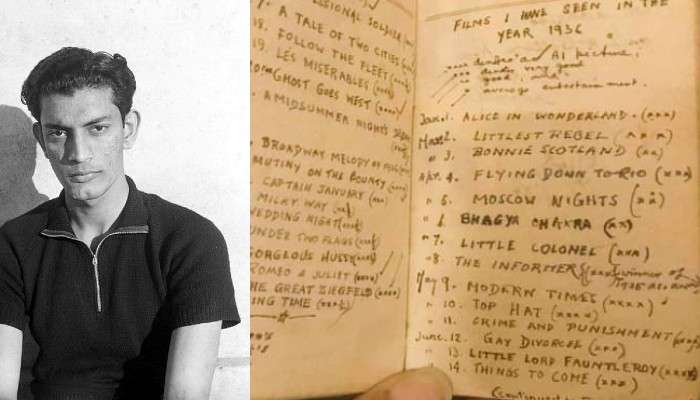 SSIONAL SOLDIER
A TALE OF TWO CITIES
18. FOLLOW THE FLEET (
19. LES MISERABLES (
GHOST GOES WEST (
A MIDSUMMER NIGHT'S
BROADWAY MELODY OF
MUTINY ON THE BOUNTY (
CAPTAIN JANUARY (xx)
MILKY WAY (
WEDDING NIGHT (
UNDER TWO FLAGS (
GORGEOUS HUSSY (
ROMEO & JULIET (
HE GREAT ZIEGFELD (
ING TIME (
FILMS I HAVE SEEN IN THE
YEAR 1936
xxxx denotes an A1 picture.
xxx denotes very good
xx good
x average entertainment.
Jan. 1. ALICE IN WONDERLAND. (xxx)
2. LITTLEST REBEL (xxx)
" 3. BONNIE SCOTLAND (xx)
Apr. 4. FLYING DOWN TO RIO (xxx)
" 5. MOSCOW NIGHTS (xx)
" 6. BHAGYA CHAKRA (xx)
" 7. LITTLE COLONEL (xxx)
" 8. THE INFORMER (winner of
May 9. MODERN TIMES (xxxx)
" 10. TOP HAT (xxxx)
" 11. CRIME AND PUNISHMENT (
June. 12. GAY DIVORCEE (xxx)
" 13. LITTLE LORD FAUNTLEROY (xxxx)
" 14. THINGS TO COME (xxx)